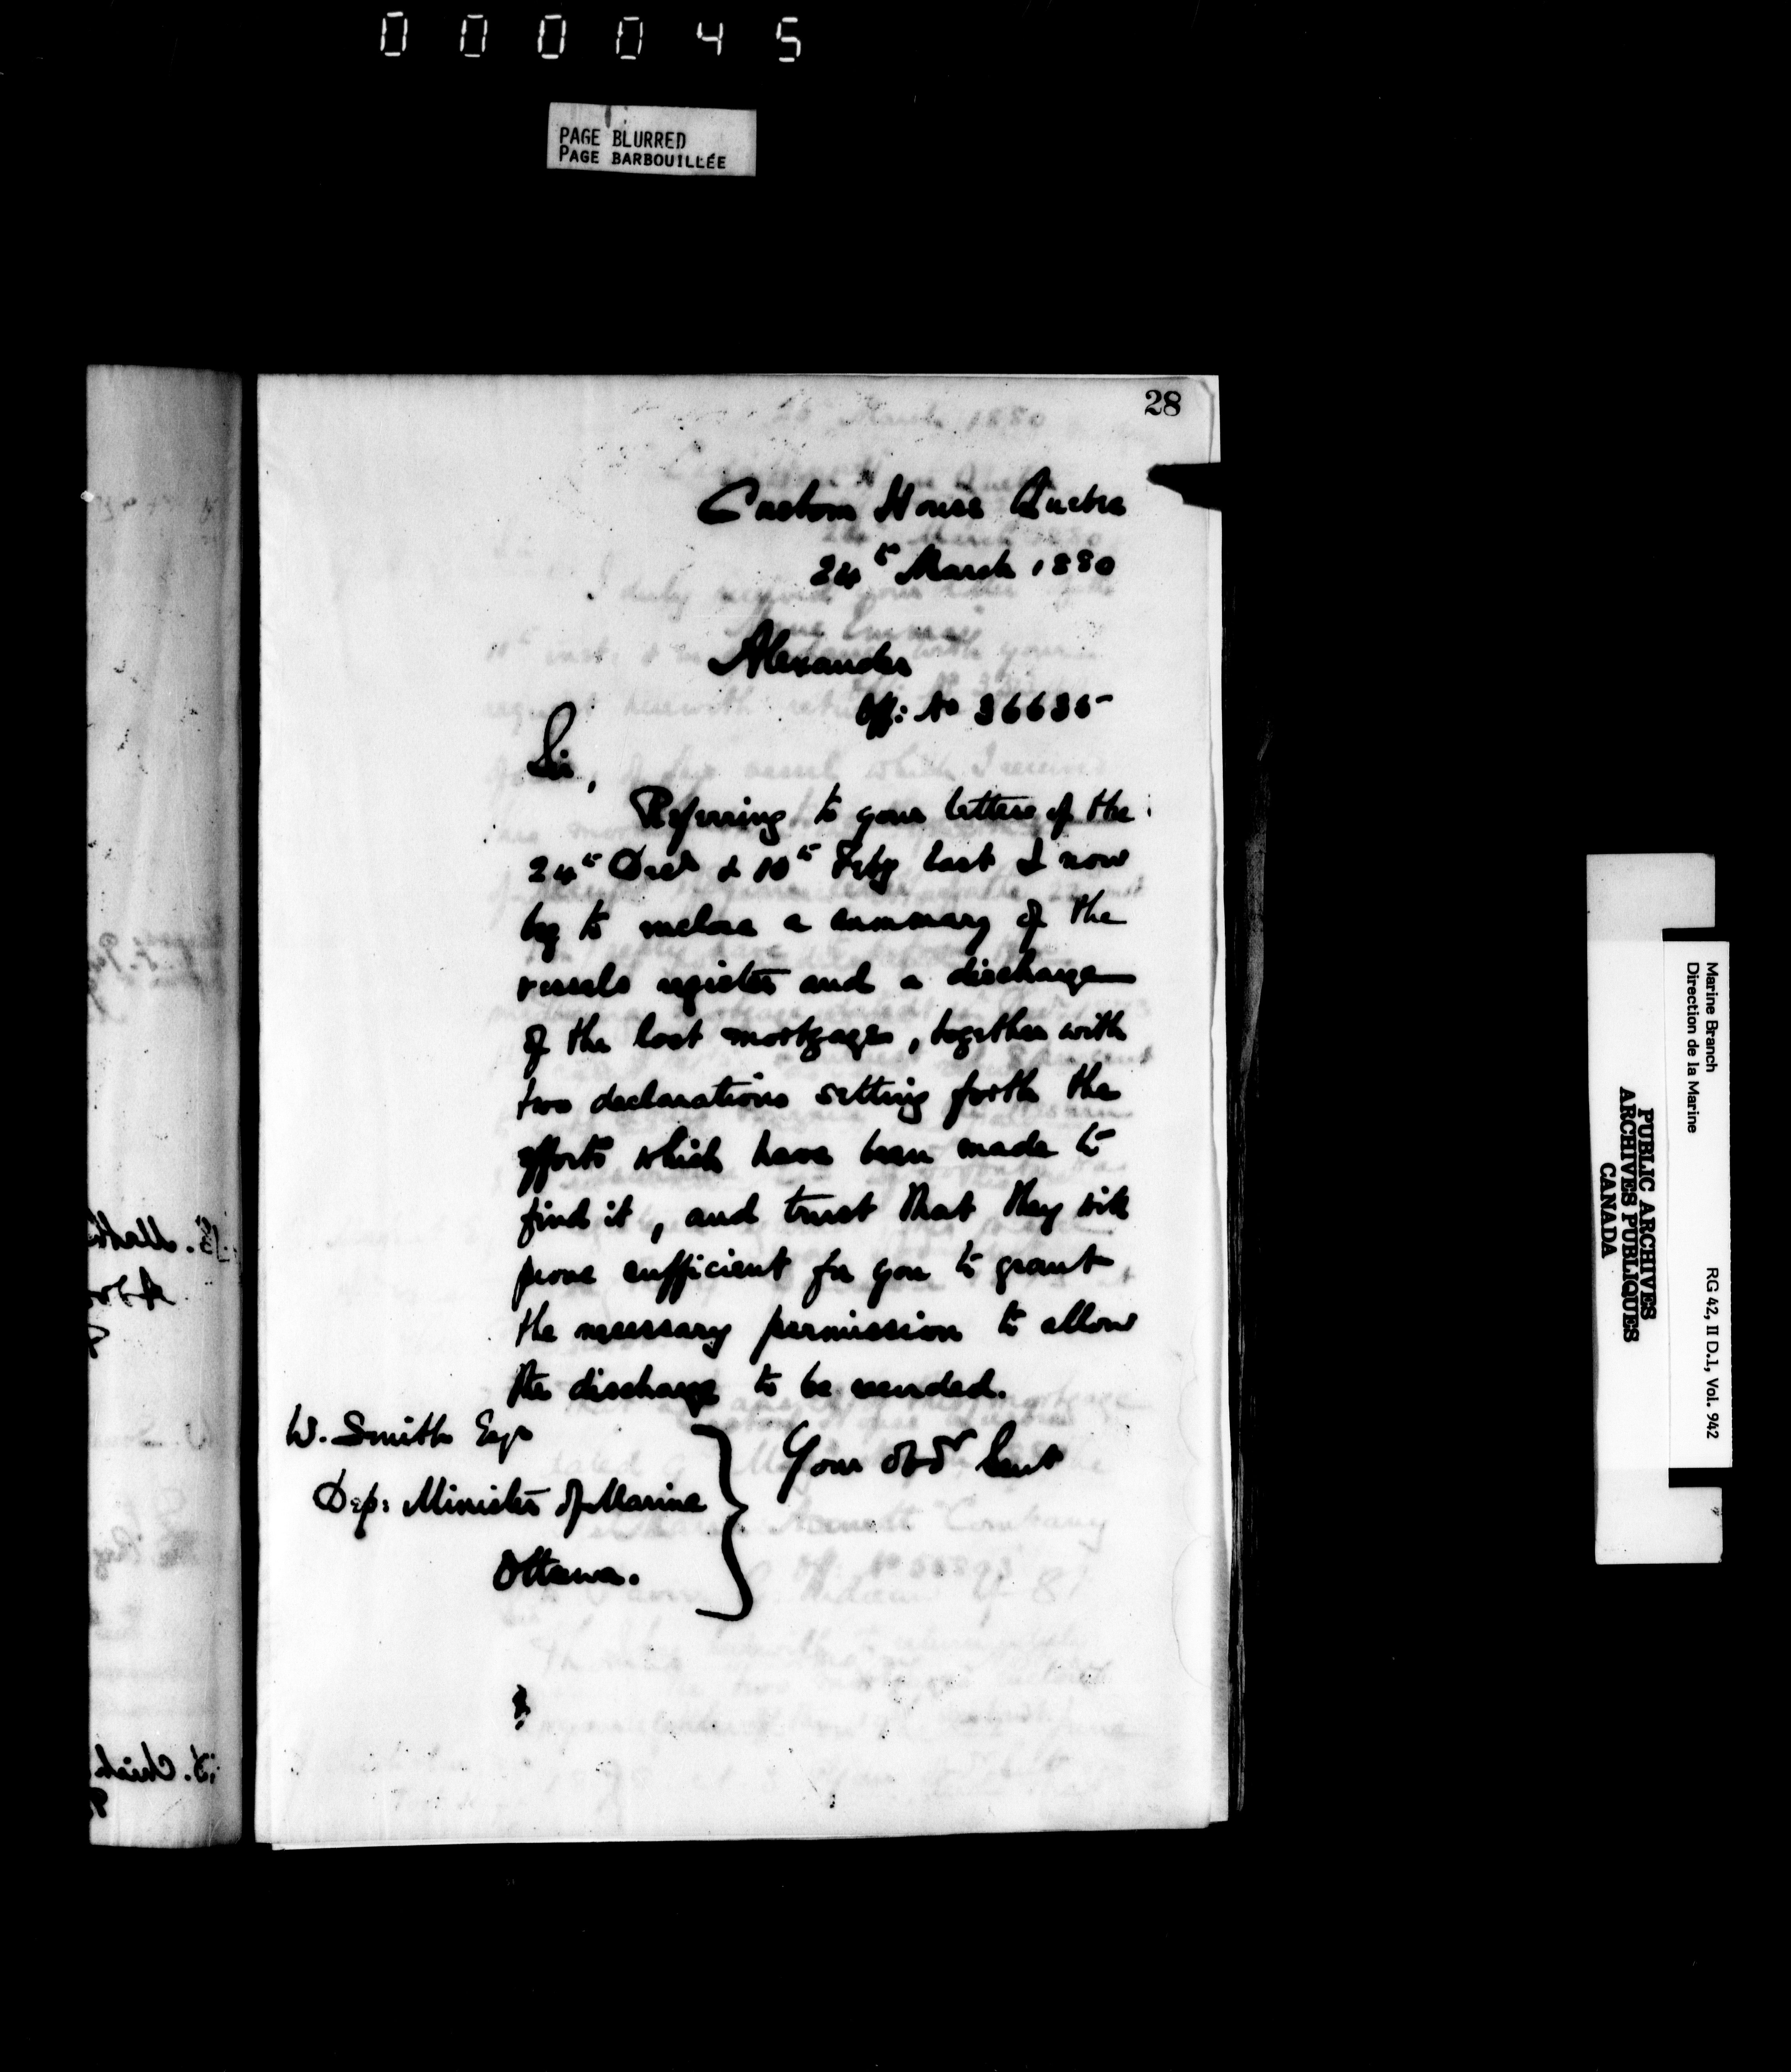 000045
PAGE BLURRED
PAGE BARBOUILLÉE
28
Custom House Quebec
24th March 1880
Alexander
Off: No 36635
Sir,
Referring to your letters of the
24th Decr & 10th Feby last I now
beg to enclose a summary of the
vessels register and a discharge
of the lost mortgage, together with
two declarations setting forth the
efforts which have been made to
find it, and trust that they will
prove sufficient for you to grant
the necessary permission to allow
the discharge to be recorded.
Your obdt Servt
W. Smith Esqr
Dep: Minister of Marine
Ottawa.
Marine Branch
Direction de la Marine
RG 42, II D.1, Vol. 942
PUBLIC ARCHIVES
ARCHIVES PUBLIQUES
CANADA